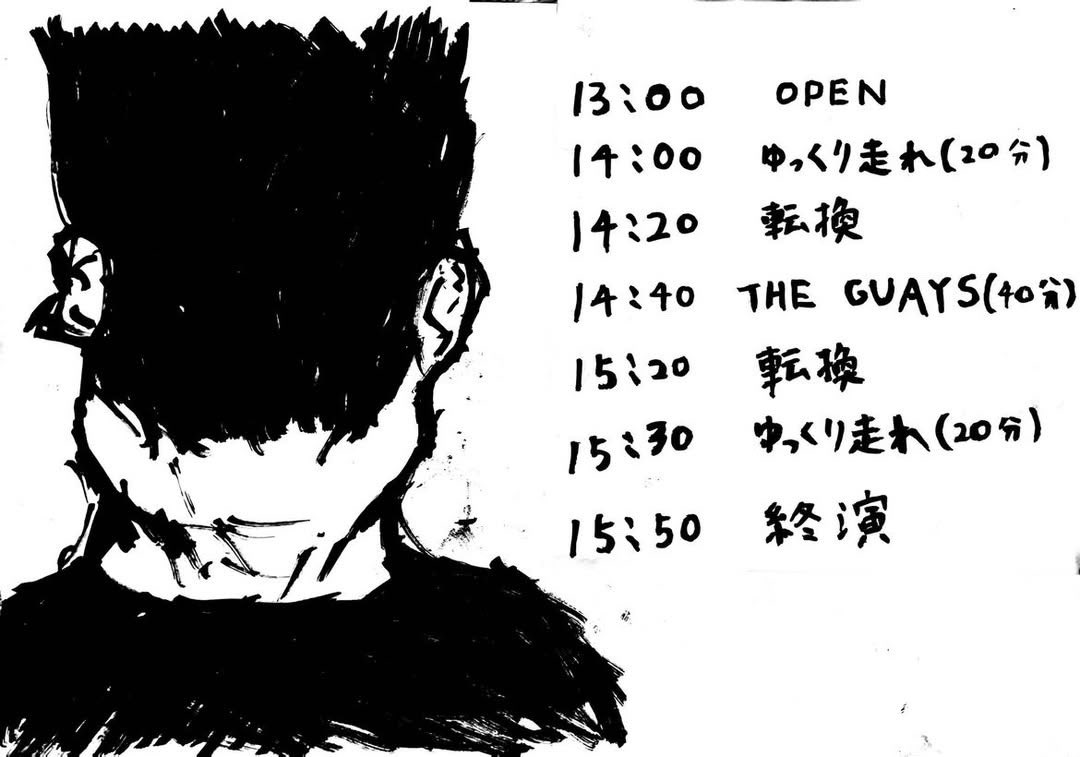 13:00 OPEN
14:00 ゆっくり走れ(20分)
14:20 転換
14:40 THE GUAYS(40分)
15:20 転換
15:30 ゆっくり走れ(20分)
15:50 終演